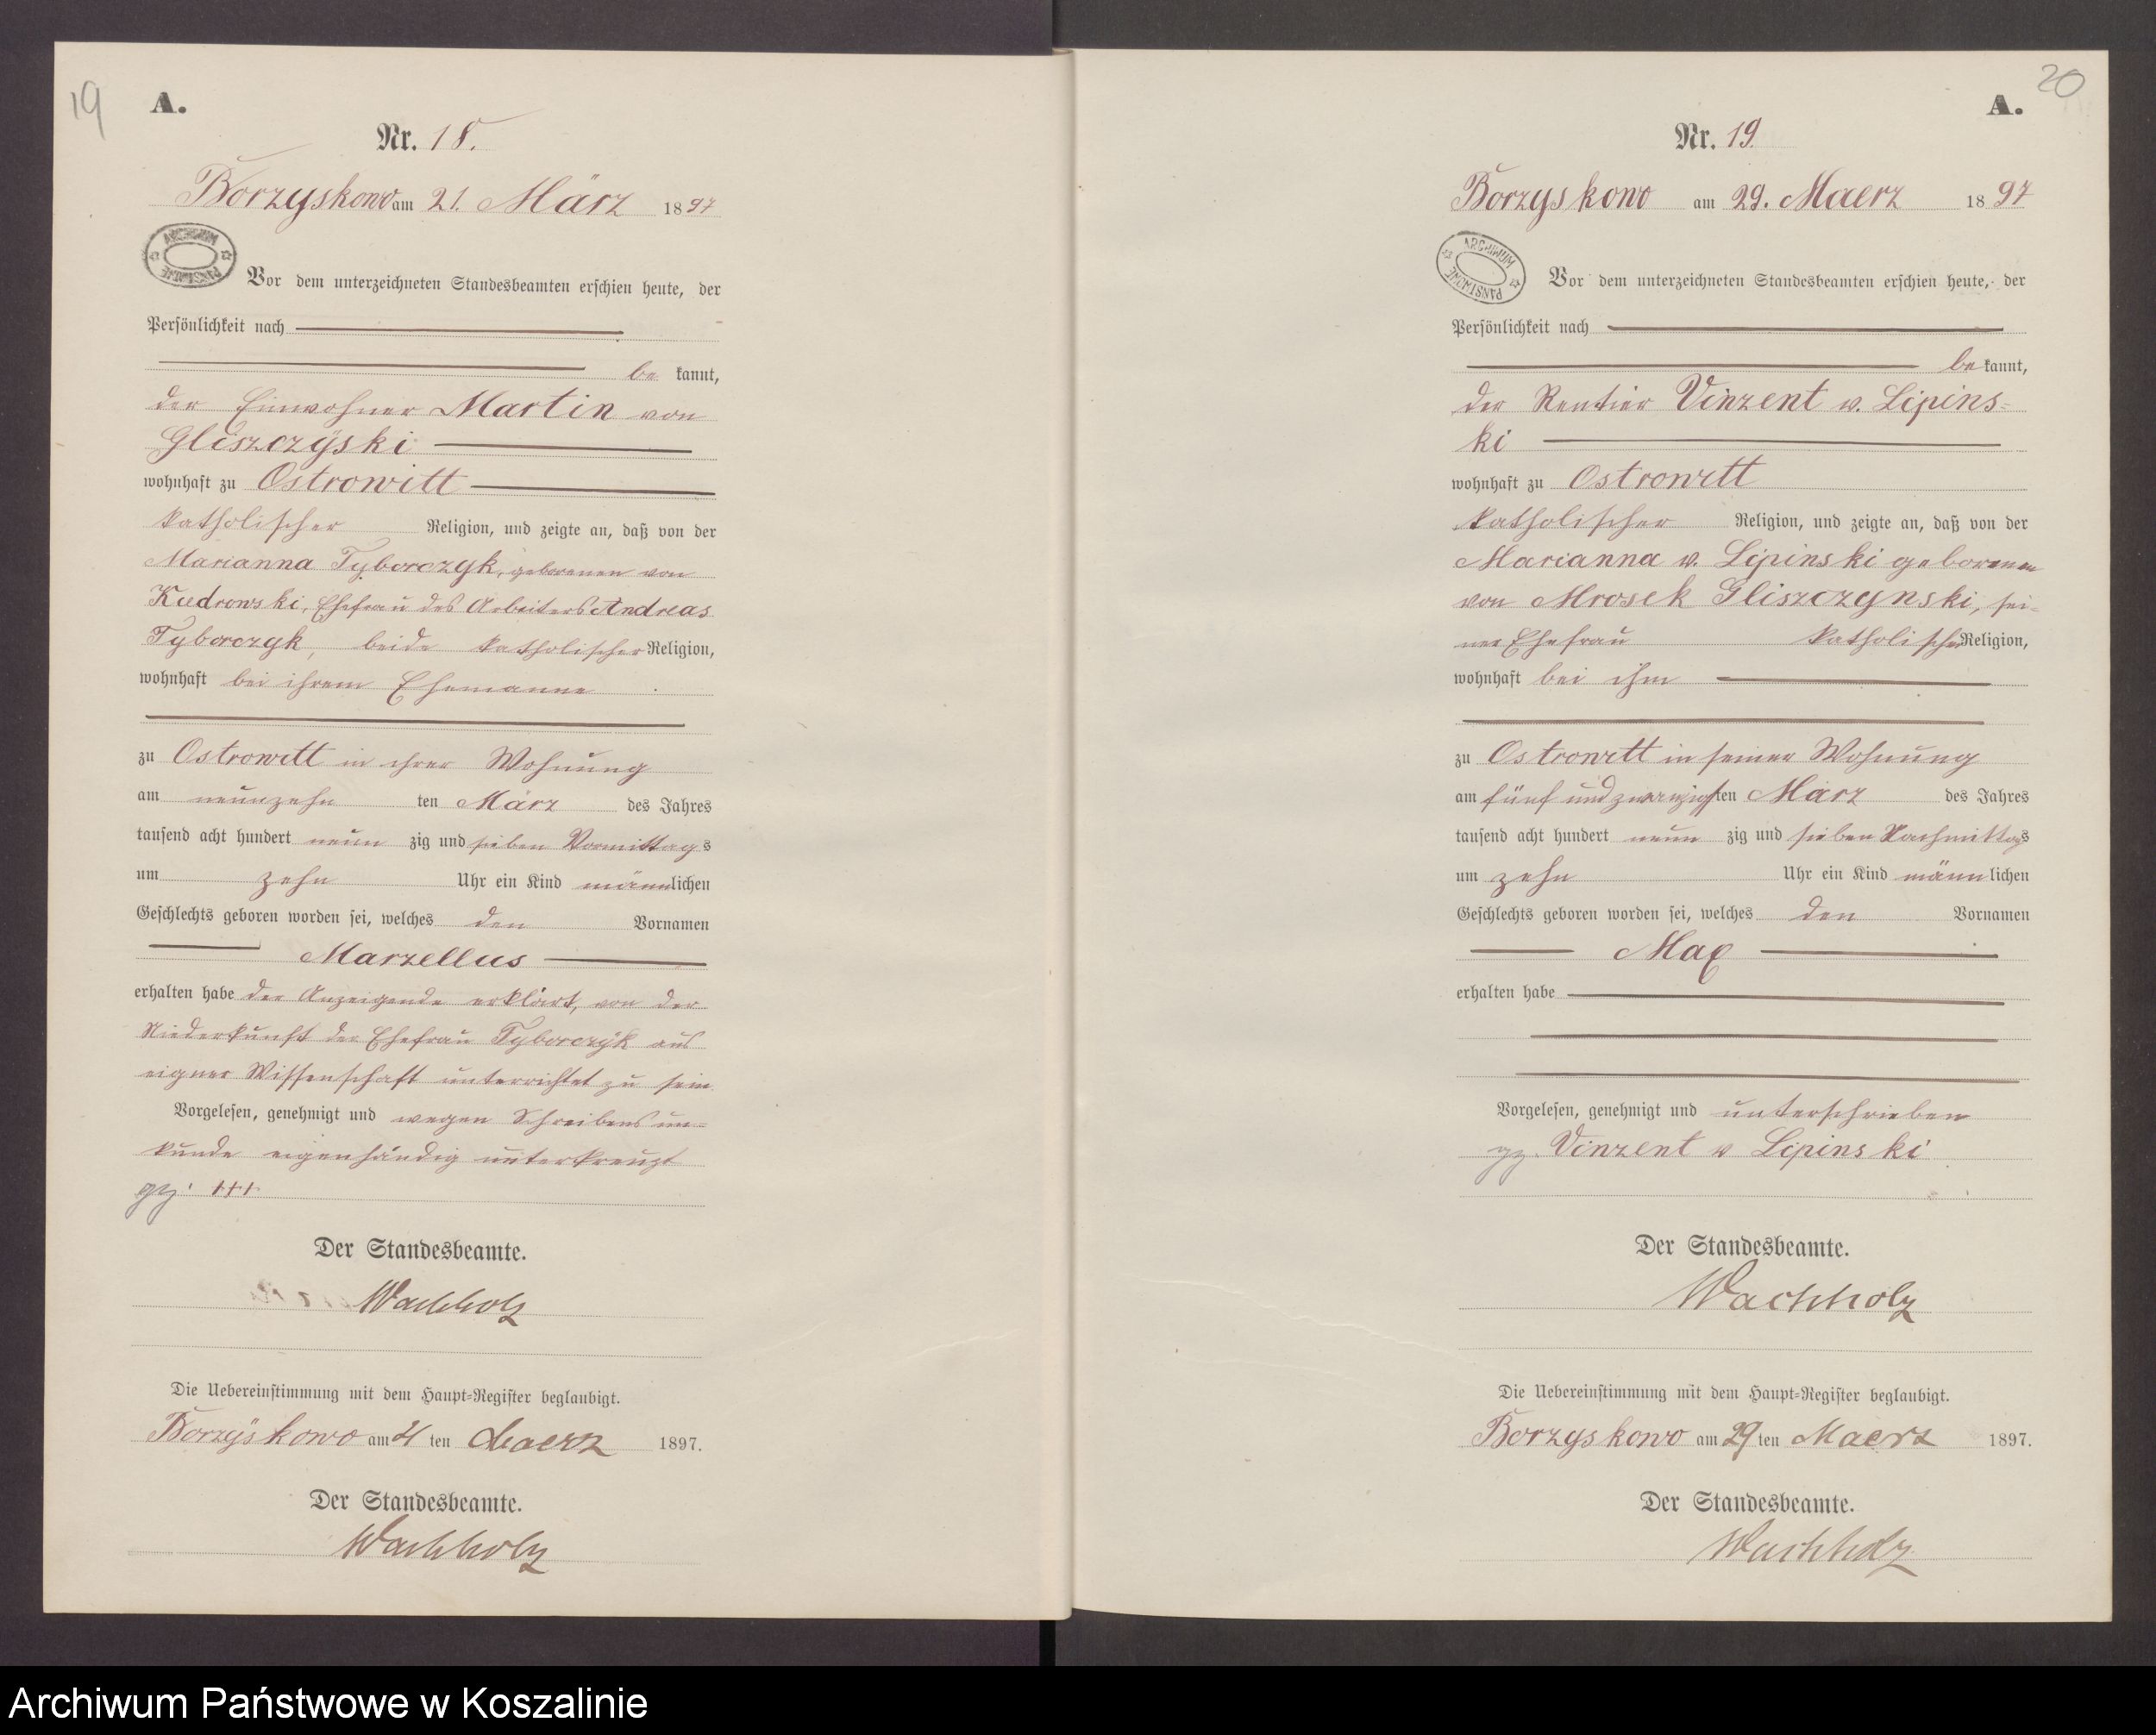 19
A.
Nr. 18.
Borzyskowo am 21. März 1897
ARCHIWUM PAŃSTWOWE
Vor dem unterzeichneten Standesbeamten erschien heute, der
Persönlichkeit nach
be kannt,
der Einwohner Martin von
Gliszczÿski
wohnhaft zu Ostrowitt
katholischer Religion, und zeigte an, daß von der
Marianna Tyborczyk, geborenen von
Kiedrowski, Ehefrau des Arbeiters Andreas
Tyborczyk, beide katholischer Religion,
wohnhaft bei ihrem Ehemanne
zu Ostrowitt in ihrer Wohnung
am neunzehn ten März des Jahres
tausend acht hundert neun zig und sieben Vormittags
um zehn Uhr ein Kind männlichen
Geschlechts geboren worden sei, welches den Vornamen
Marzellus
erhalten habe der Anzeigende erklärt, von der
Niederkunft der Ehefrau Tyborczÿk aus
eigner Wissenschaft unterrichtet zu sein.
Vorgelesen, genehmigt und wegen Schreibensun=
kunde eigenhändig unterkreuzt
gz. +++
Der Standesbeamte.
Wachholz
Die Uebereinstimmung mit dem Haupt=Register beglaubigt.
Borzÿskowo am 21 ten Maerz 1897.
Der Standesbeamte.
Wachholz
20
A.
Nr. 19.
Borzyskowo am 29. Maerz 1897
ARCHIWUM PAŃSTWOWE
Vor dem unterzeichneten Standesbeamten erschien heute, der
Persönlichkeit nach
be kannt,
der Rentier Vinzent v. Lipins=
ki
wohnhaft zu Ostrowitt
katholischer Religion, und zeigte an, daß von der
Marianna v. Lipinski geborenen
von Mrosek Gliszczynski, sei=
ner Ehefrau katholischer Religion,
wohnhaft bei ihm
zu Ostrowitt in seiner Wohnung
am fünf und zwanzigsten März des Jahres
tausend acht hundert neun zig und sieben Nachmittags
um zehn Uhr ein Kind männlichen
Geschlechts geboren worden sei, welches den Vornamen
Max
erhalten habe
Vorgelesen, genehmigt und unterschrieben
gz. Vinzent v Lipinski
Der Standesbeamte.
Wachholz
Die Uebereinstimmung mit dem Haupt=Register beglaubigt.
Borzyskowo am 29 ten Maerz 1897.
Der Standesbeamte.
Wachholz
Archiwum Państwowe w Koszalinie